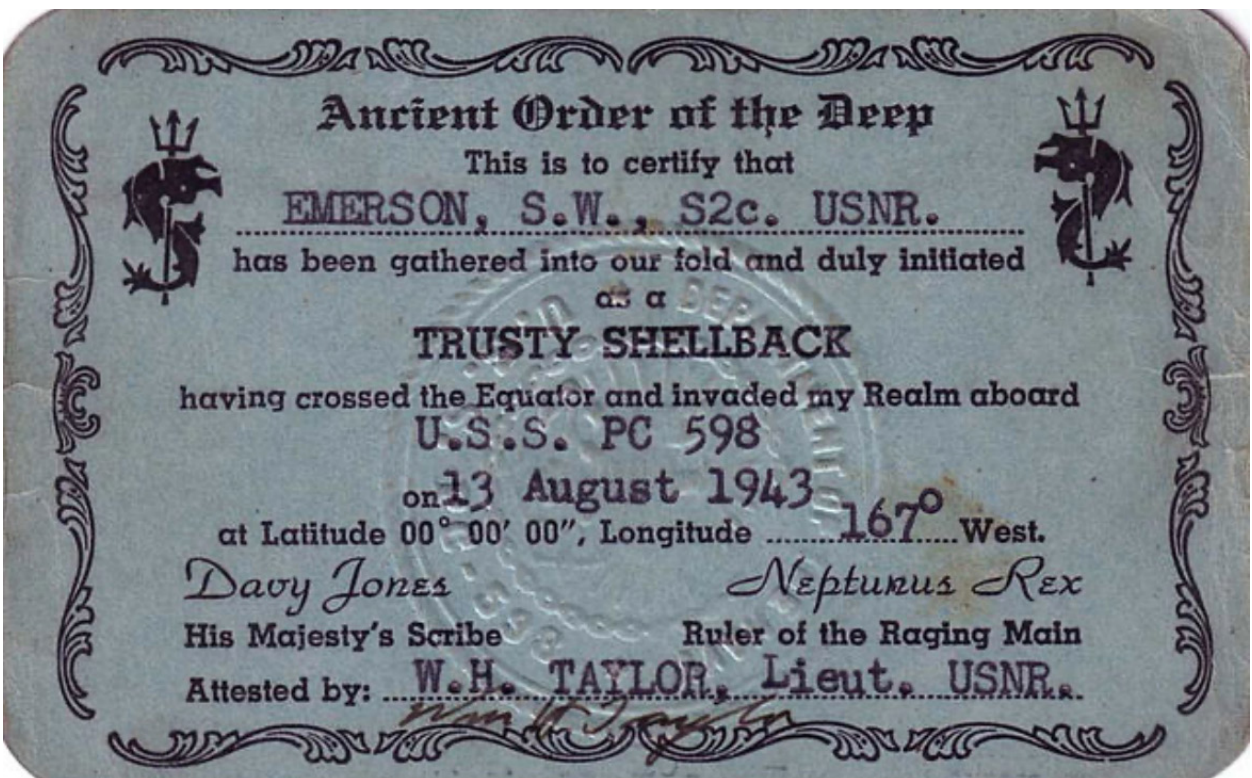 Ancient Order of the Deep
This is to certify that
EMERSON, S.W., S2c. USNR.
has been gathered into our fold and duly initiated
as a
TRUSTY SHELLBACK
having crossed the Equator and invaded my Realm aboard
U.S.S. PC 598
on 13 August 1943
at Latitude 00° 00′ 00″, Longitude 167° West.
Davy Jones Neptunus Rex
His Majesty's Scribe Ruler of the Raging Main
Attested by: W.H. TAYLOR, Lieut. USNR.
Wm H Taylor